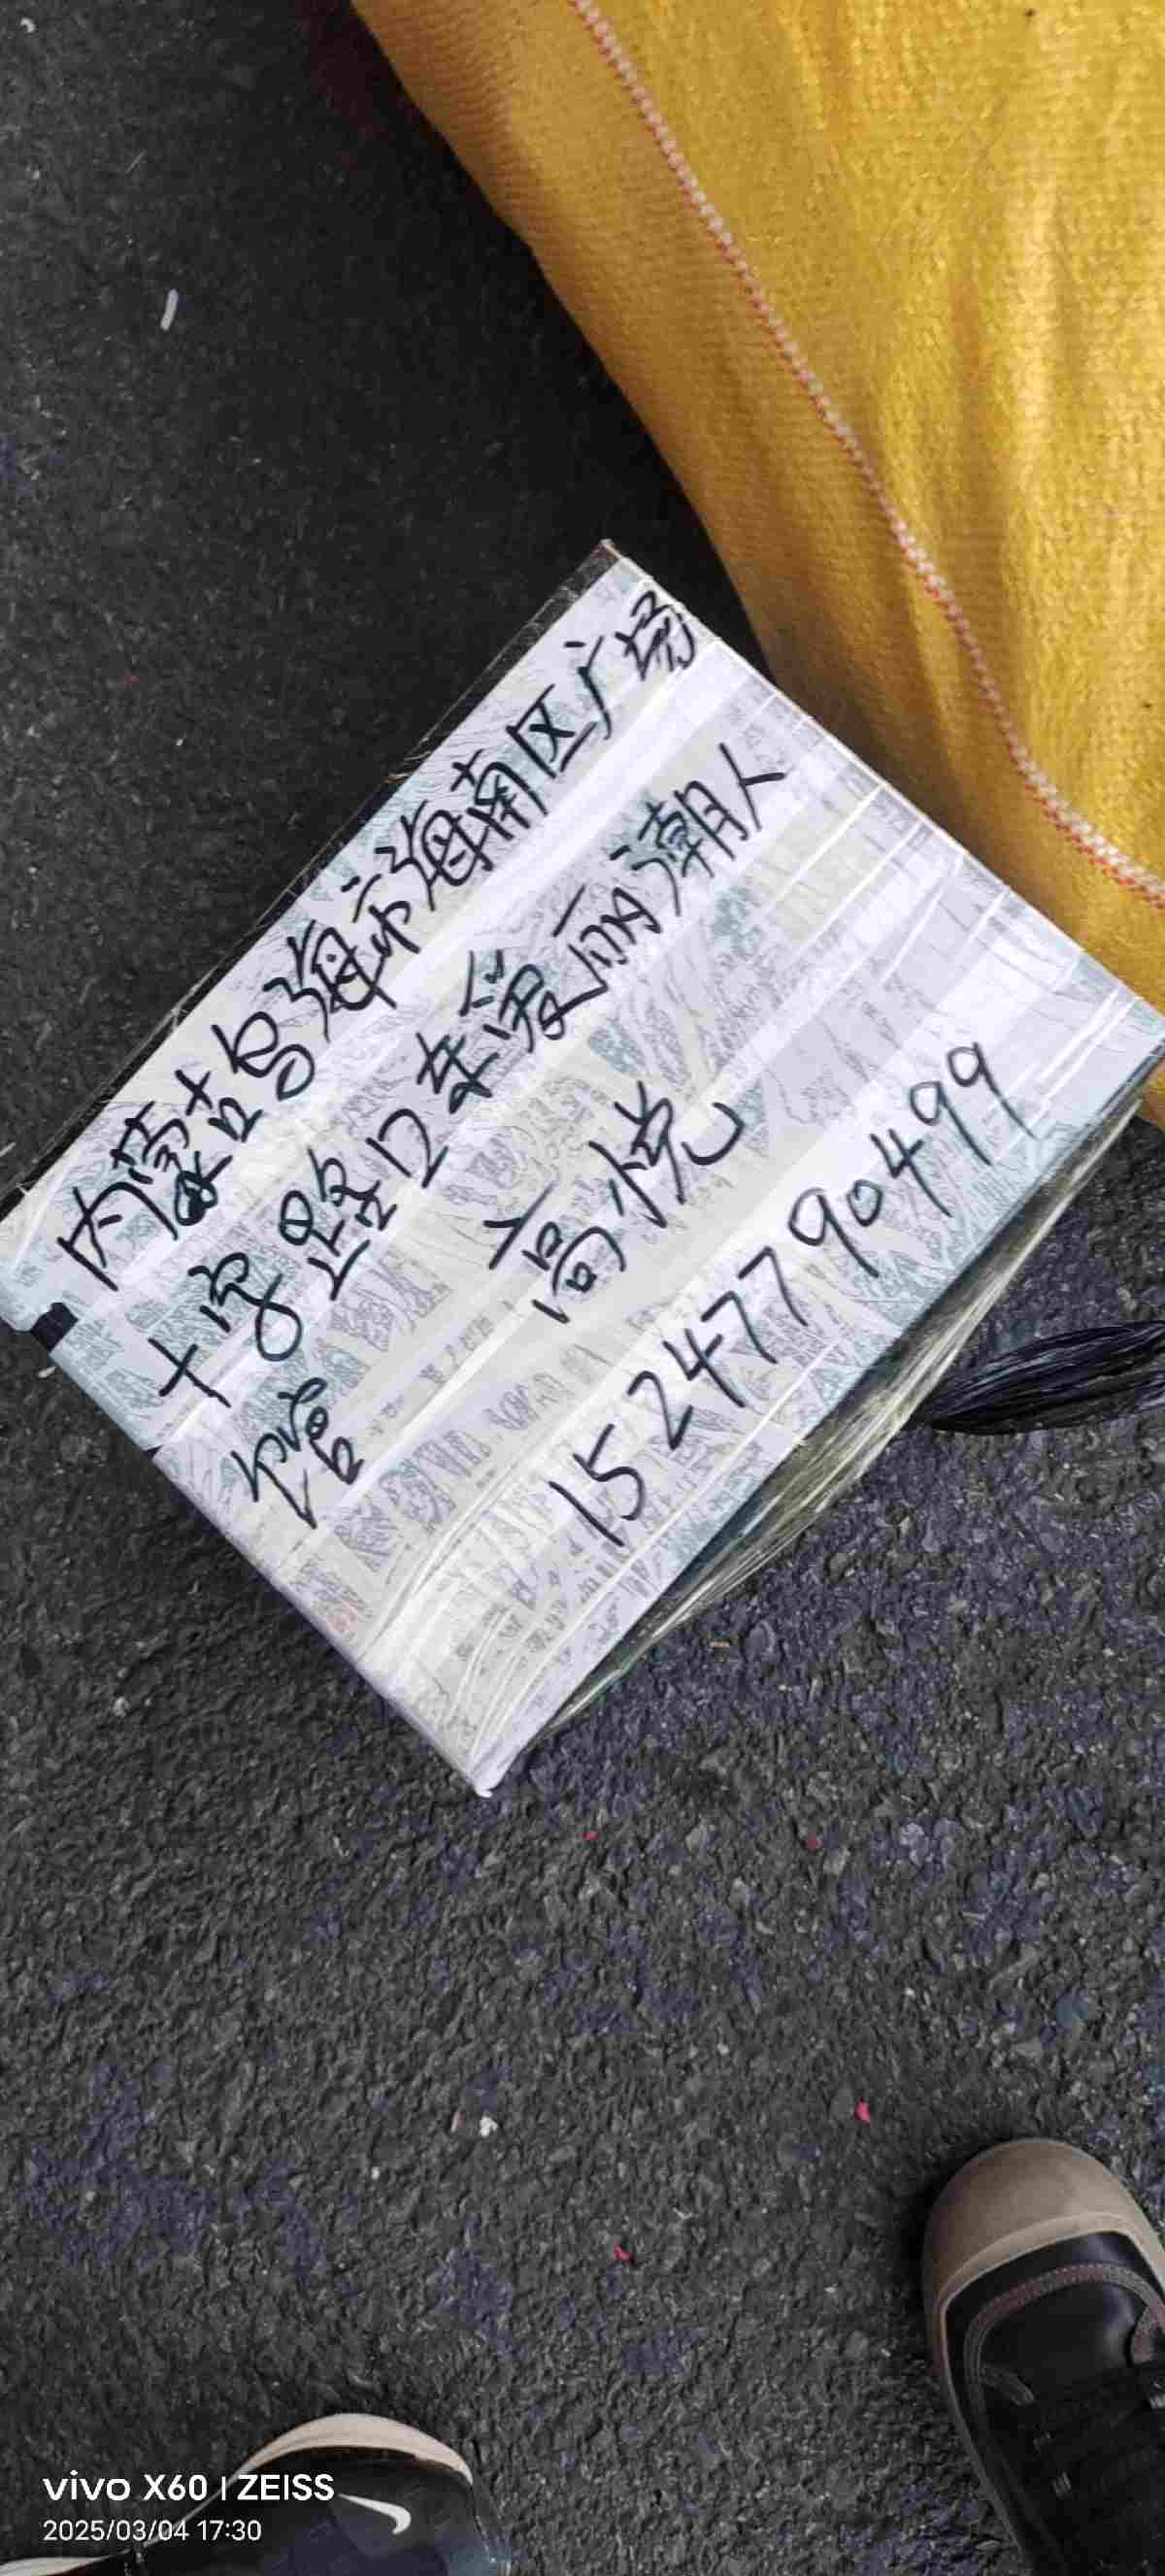 内蒙古乌海市海南区广场
十字路口东爱丽潮人
馆
高悦
15247790499
vivo X60 | ZEISS
2025/03/04 17:30